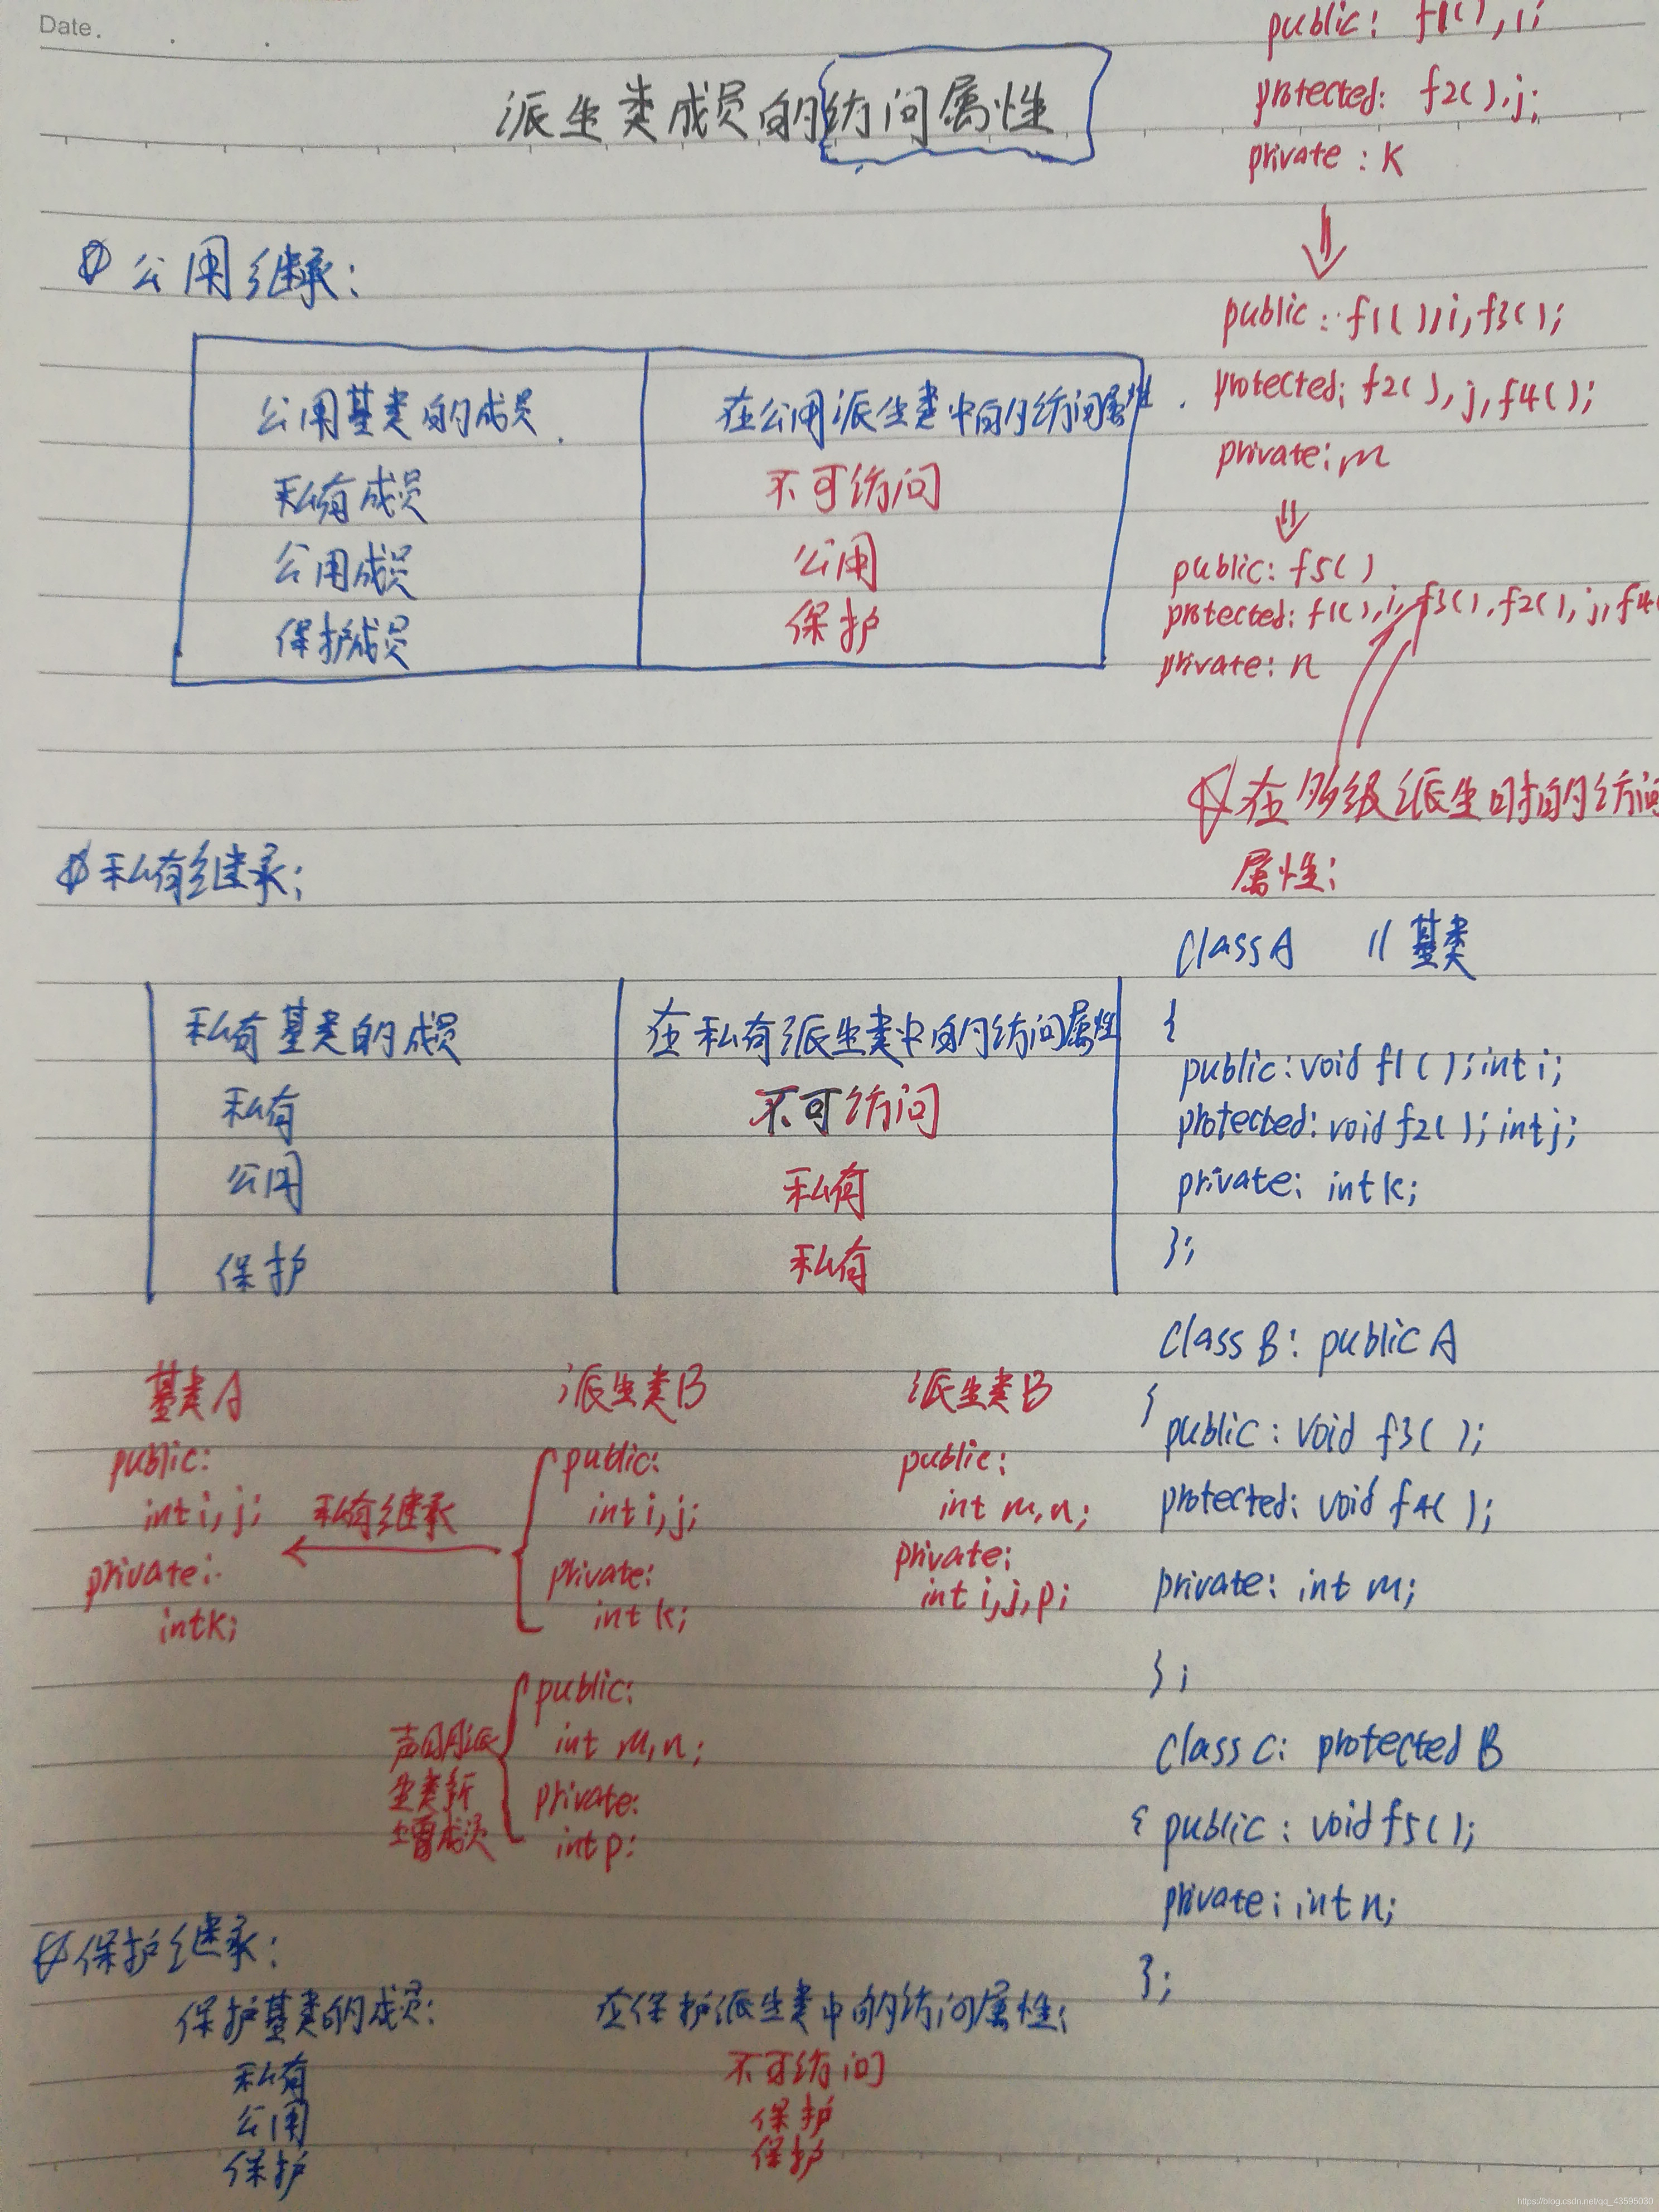 Date.
派生类成员的访问属性
公用继承:
公用基类的成员 在公用派生类中的访问属性.
私有成员 不可访问
公用成员 公用
保护成员 保护
私有继承:
私有基类的成员 在私有派生类中的访问属性
私有 不可访问
公用 私有
保护 私有
基类A 派生类B 派生类B
public: public: public:
int i, j; 私有继承 int i, j; int m, n;
private: private: private:
int k; int k; int i, j, p;
public:
声明派 int m, n;
生类新 private:
增成员 int p:
保护继承:
保护基类的成员: 在保护派生类中的访问属性:
私有 不可访问
公用 保护
保护 保护
public: f1( ), i;
protected: f2( ), j;
private : k
public : f1( ), i, f3( );
protected: f2( ), j, f4( );
private: m
public: f5( )
protected: f1( ), i, f3( ), f2( ), j, f4(
private: n
在多级派生时的访问
属性:
class A // 基类
{
public: void f1( ); int i;
protected: void f2( ); int j;
private: int k;
};
class B: public A
{
public: void f3( );
protected: void f4( );
private: int m;
};
class C: protected B
{ public : void f5( );
private: int n;
};
https://blog.csdn.net/qq_43595030